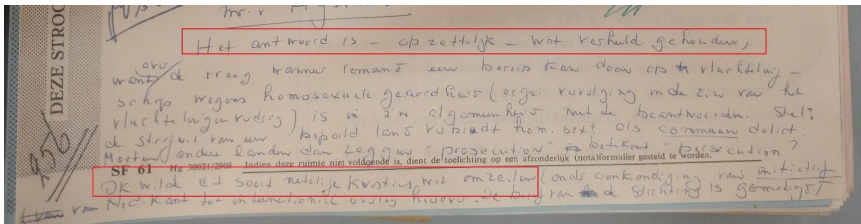 mr. v.
DEZE STROO
Het antwoord is – opzettelijk – wat verhuld gehouden,
over
want de vraag wanneer iemand een beroep kan doen op vluchteling-
schap wegens homosexuele geaardheid (ergo: vervolging in de zin van het
vluchtelingenverdrag) is in zijn algemeenheid niet te beantwoorden. Stel:
de strafwet van een bepaald land verbiedt hom. sex als commuun delict.
Moeten andere landen dan zeggen "prosecution" betekent "persecution"?
SF 61 Hs 30021/2908 Indien deze ruimte niet voldoende is, dient de toelichting op een afzonderlijk (nota)formulier gesteld te worden.
256
Ik wilde dit soort netelige kwesties wat omzeilen (onder aankondiging van initiatief
van Ned. kant tot internationaal overleg hierover. De brief van de Stichting is gemotiveerd